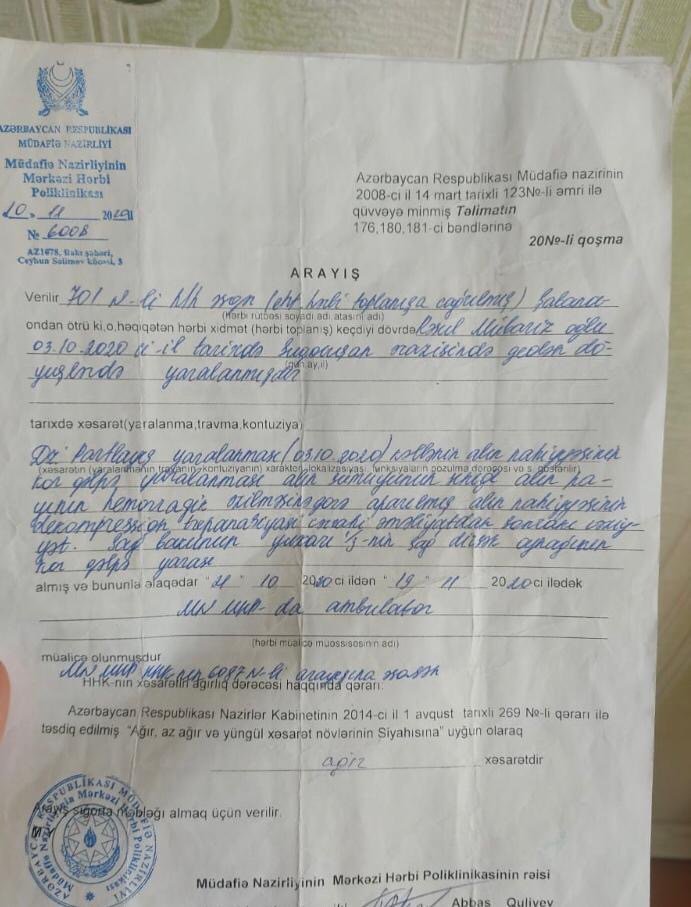 AZƏRBAYCAN RESPUBLİKASI
MÜDAFİƏ NAZİRLİYİ
Müdafiə Nazirliyinin
Mərkəzi Hərbi
Poliklinikası
20. 11 2020
№ 6008
AZ1078, Bakı şəhəri,
Ceyhun Səlimov küçəsi, 3
Azərbaycan Respublikası Müdafiə nazirinin
2008-ci il 14 mart tarixli 123№-li əmri ilə
qüvvəyə minmiş Təlimatın
176,180,181-ci bəndlərinə
20№-li qoşma
ARAYIŞ
Verilir 701 N-li h/h əsgəri toplanışa çağırılmış)
(Hərbi rütbəsi soyadı adı atasını adı)
ondan ötrü ki,o,həqiqətən hərbi xidmət (hərbi toplanış) keçdiyi dövrdə Mübariz oğlu
03.10.2020 ci-il tarixdə Suqovuşan ərazisində gedən dö-
(gün,ay,il)
yüşlərdə yaralanmışdır
tarixdə xəsarət(yaralanma,travma,kontuziya)
Dz: Partlayış yaralanması (03.10.2020) kəllənin alın nahiyyəsinin
(xəsarətin (yaralanmanın,travmanın,kontuziyanın) xarakteri,lokalizasiyası, funksiyaların pozulma dərəcəsi və s. göstərilir)
kor qəlpə yaralanması alın sümüyünün sınığı alın pa-
yının hemorragik əzilməsinə görə aparılmış alın nahiyyəsinin
dekompression trepanasiyası cərrahi əməliyyatdan sonrakı vəziy-
yət. Sağ baldırın yuxarı 1/3-nin sağ
kor qəlpə yarası
almış və bununla əlaqədar " 21 " 10 2020 ci ildən " 19 " 11 2020 ci ilədək
MN MHP-da ambulator
(hərbi müalicə müəssisəsinin adı)
müalicə olunmuşdur
MN MHP HHK-nın 6087 N-li arayışına əsasən
HHK-nın xəsarətin ağırlıq dərəcəsi haqqında qərarı:
Azərbaycan Respublikası Nazirlər Kabinetinin 2014-ci il 1 avqust tarixli 269 №-li qərarı ilə
təsdiq edilmiş "Ağır, az ağır və yüngül xəsarət növlərinin Siyahısına" uyğun olaraq
ağır xəsarətdir
Arayış sığorta məbləği almaq üçün verilir.
M.Y
AZƏRBAYCAN RESPUBLİKASI MÜDAFİƏ NAZİRLİYİ
Müdafiə Nazirliyinin Mərkəzi Hərbi Poliklinikası
Müdafiə Nazirliyinin Mərkəzi Hərbi Poliklinikasının rəisi
Abbas Quliyev